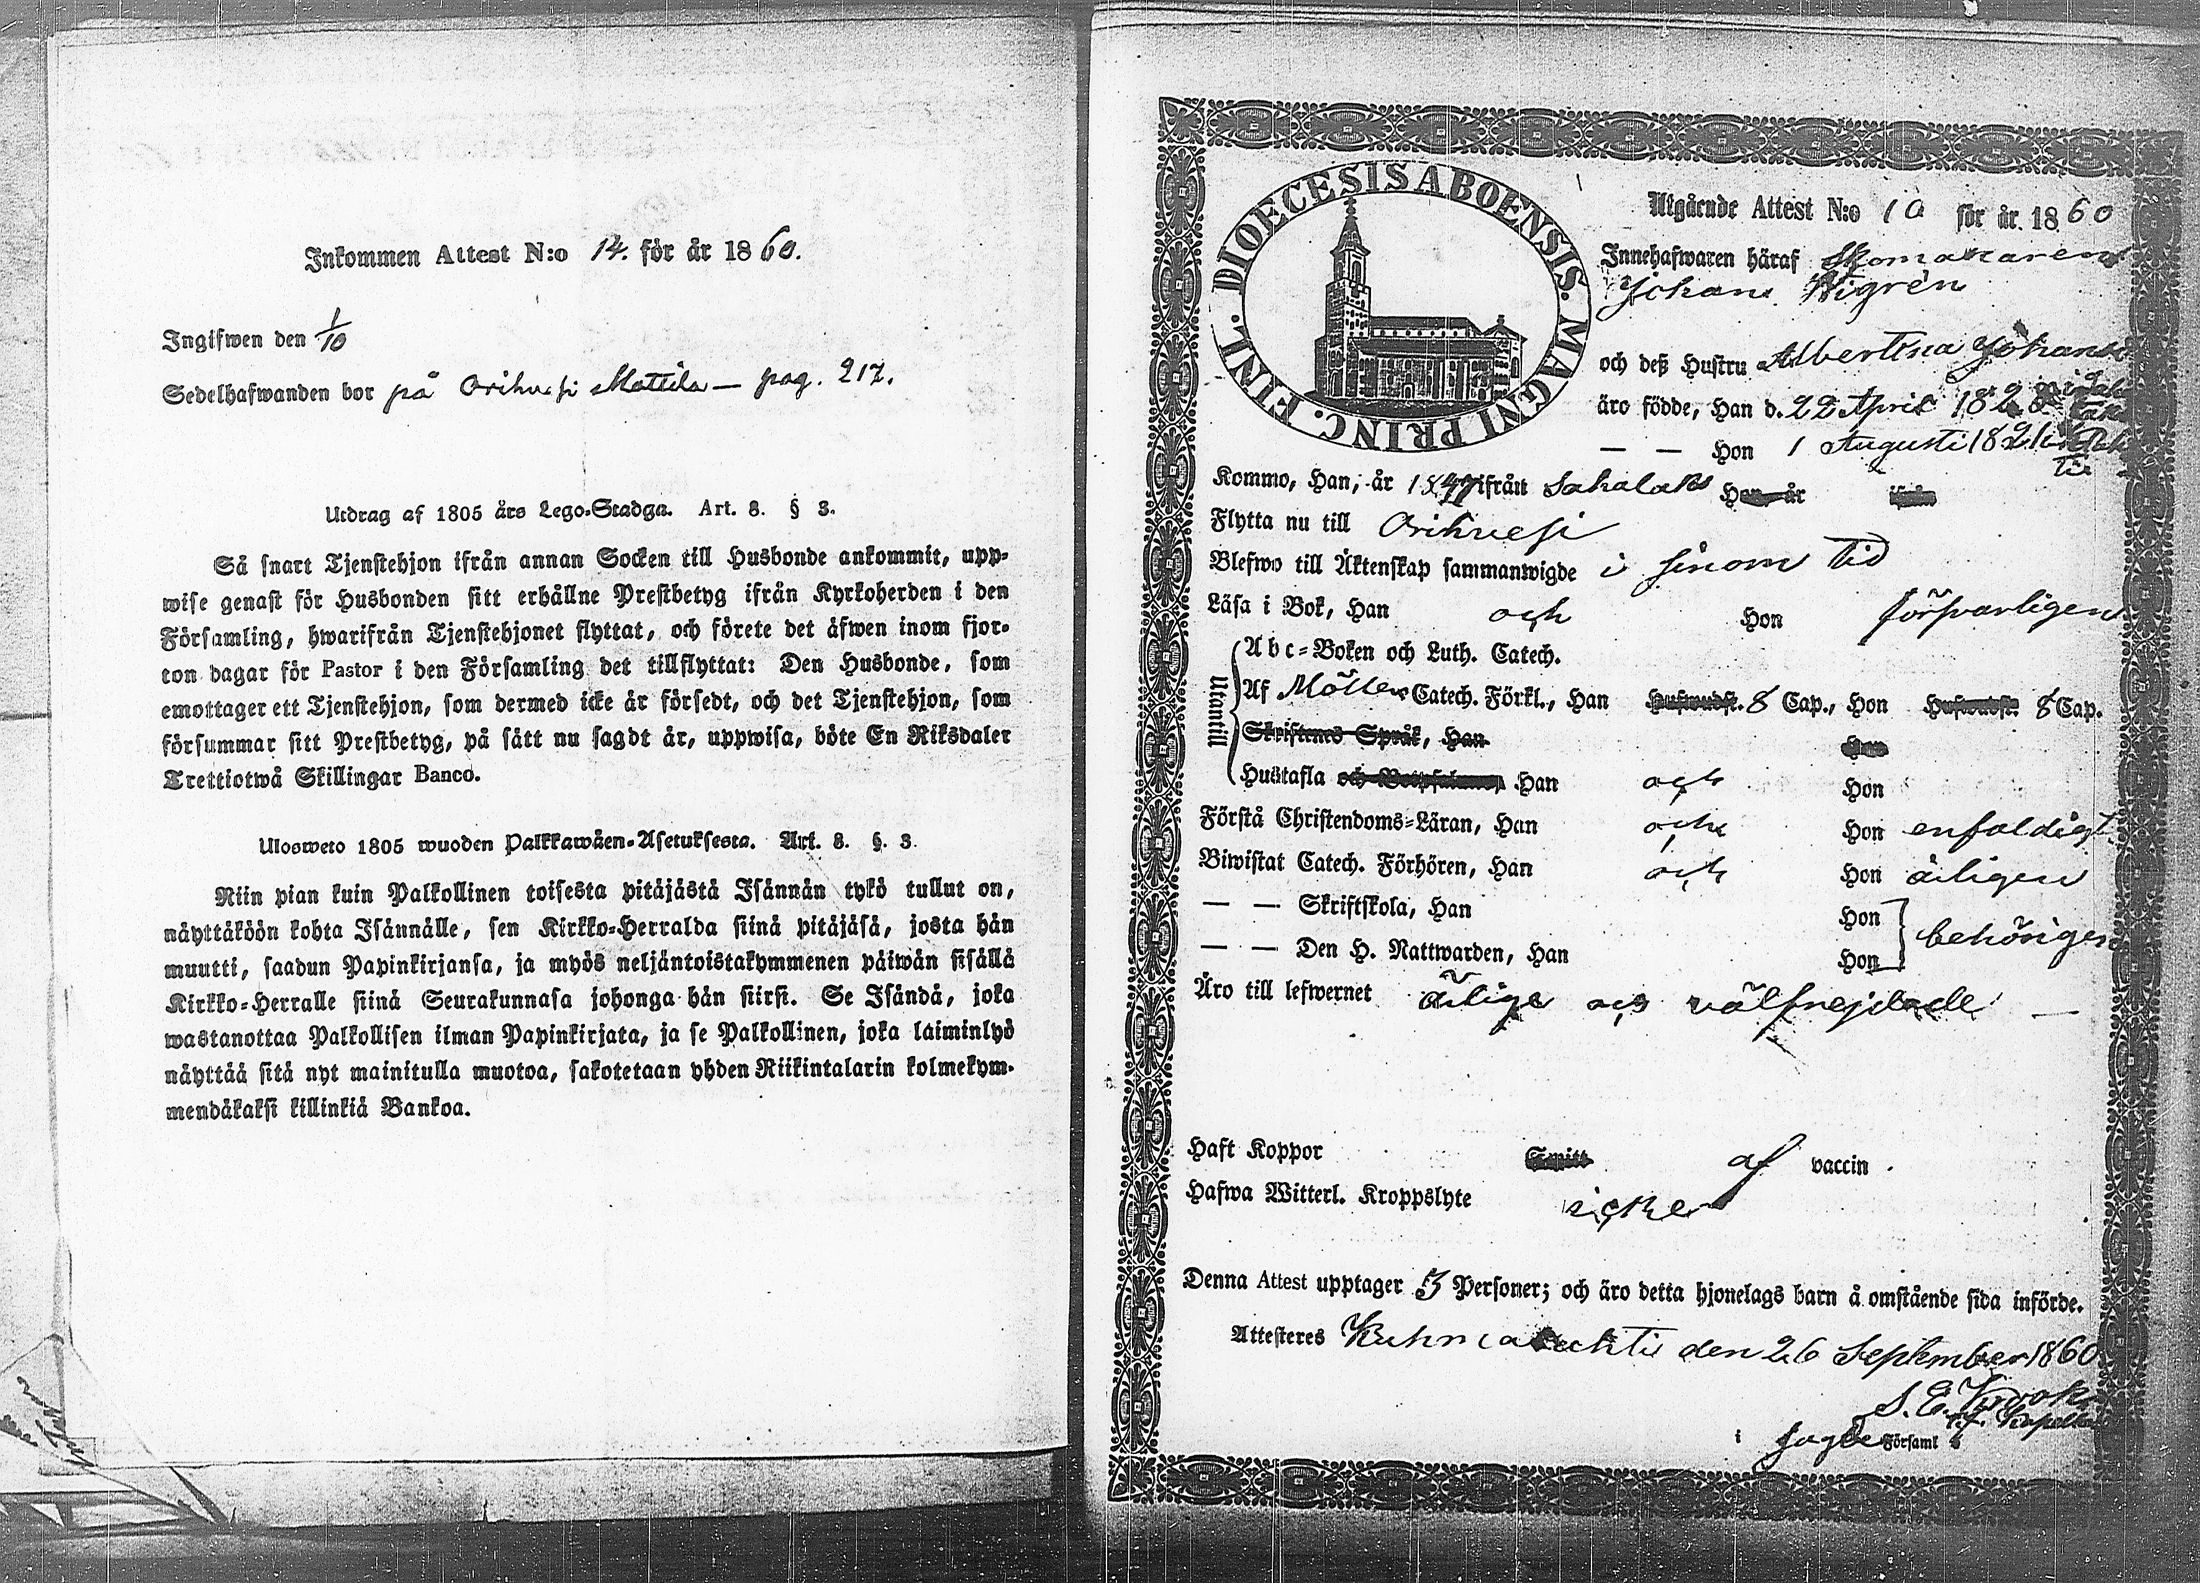 Inkommen Attest N:o 14. för år 1860.
Ingifwen den 1/10
Sedelhafwanden bor på Orihvesi Mattila — pag. 217.
Utdrag af 1805 års Lego-Stadga. Art. 8. § 3.
Så snart Tjenstehjon ifrån annan Socken till Husbonde ankommit, upp-
wise genast för Husbonden sitt erhållne Prestbetyg ifrån Kyrkoherden i den
Församling, hwarifrån Tjenstehjonet flyttat, och förete det äfwen inom fjor-
ton dagar för Pastor i den Församling det tillflyttat: Den Husbonde, som
emottager ett Tjenstehjon, som dermed icke är försedt, och det Tjenstehjon, som
försummar sitt Prestbetyg, på sätt nu sagdt är, uppwisa, böte En Riksdaler
Trettiotwå Skillingar Banco.
Ulosweto 1805 wuoden Palkkawäen-Asetuksesta. Art. 8. §. 3.
Niin pian kuin Palkollinen toisesta pitäjästä Isännän tykö tullut on,
näyttäköön kohta Isännälle, sen Kirkko-Herralda siinä pitäjäsä, josta hän
muutti, saadun Papinkirjansa, ja myös neljäntoistakymmenen päiwän sisällä
Kirkko-Herralle siinä Seurakunnasa johonga hän siirsi. Se Isändä, joka
wastanottaa Palkollisen ilman Papinkirjata, ja se Palkollinen, joka laiminlyö
näyttää sitä nyt mainitulla muotoa, sakotetaan yhden Riikintalarin kolmekym-
mendäkaksi killinkiä Bankoa.
DIOECESIS ABOENSIS. MAGNI PRINC. FINL.
Utgående Attest N:o 10 för år 1860
Innehafwaren häraf Skomakaren
Johan Wigrén
och deß Hustru Albertina Johans
äro födde, Han d. 22 April 182
— — Hon 1 Augusti 1821
Kommo, Han, år 1847 ifrån Sahalaks Hon år ifrån
Flytta nu till Orihvesi
Blefwo till Äktenskap sammanwigde i sinom tid
Läsa i Bok, Han och Hon försvarligen
Utantill
Abc-Boken och Luth. Catech.
Af Möllers Catech. Förkl., Han Hufwudst. 8 Cap., Hon Hufwudst. 8 Cap.
Skriftenes Språk, Han Hon
Hustafla och Botpsalmer, Han och Hon
Förstå Christendoms-Läran, Han och Hon enfaldigt
Biwistat Catech. Förhören, Han och Hon årligen
— — Skriftskola, Han Hon
— — Den H. Nattwarden, Han Hon behörigen
Äro till lefwernet ärlige och välfrejdade —
Haft Koppor af vaccin.
Hafwa Witterl. Kroppslyte icke
Denna Attest upptager 5 Personer; och äro detta hjonelags barn å omstående sida införde.
Attesteres Kuhmalachti den 26 September 1860
S. E. Krook
t.f. Kapellan
i Församl